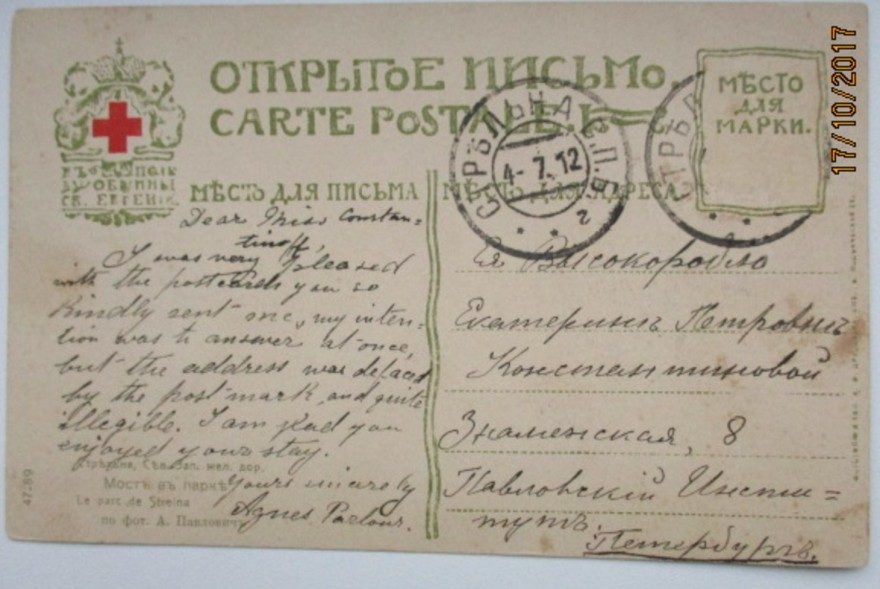 ОТКРЫТОЕ ПИСЬМО
CARTE POSTALE
МѢСТО
ДЛЯ
МАРКИ.
СТРѢЛЬНА С.П.Б.
4-7.12
2
СТРѢЛ
17/10/2017
ОБЩИНЫ
СВ. ЕВГЕНІИ.
МѢСТО ДЛЯ ПИСЬМА
МѢСТО ДЛЯ АДРЕСА
Dear Miss Constan=
tinoff,
I was very pleased
with the postcards you so
kindly sent me, my inten=
tion was to answer at once,
but the address was defaced
by the post mark, and quite
illegible. I am glad you
enjoyed your stay.
Yours sincerely
Agnes Parlour.
Стрѣльна, Сѣв.Зап. жел. дор.
Мостъ въ паркѣ
Le parc de Strelna
по фот. А. Павловича
47-89
Ея Высокоробло
Екатеринѣ Петровнѣ
Константиновой
Знаменская, 8
Павловскій Инсти=
тутъ.
Петербургъ.